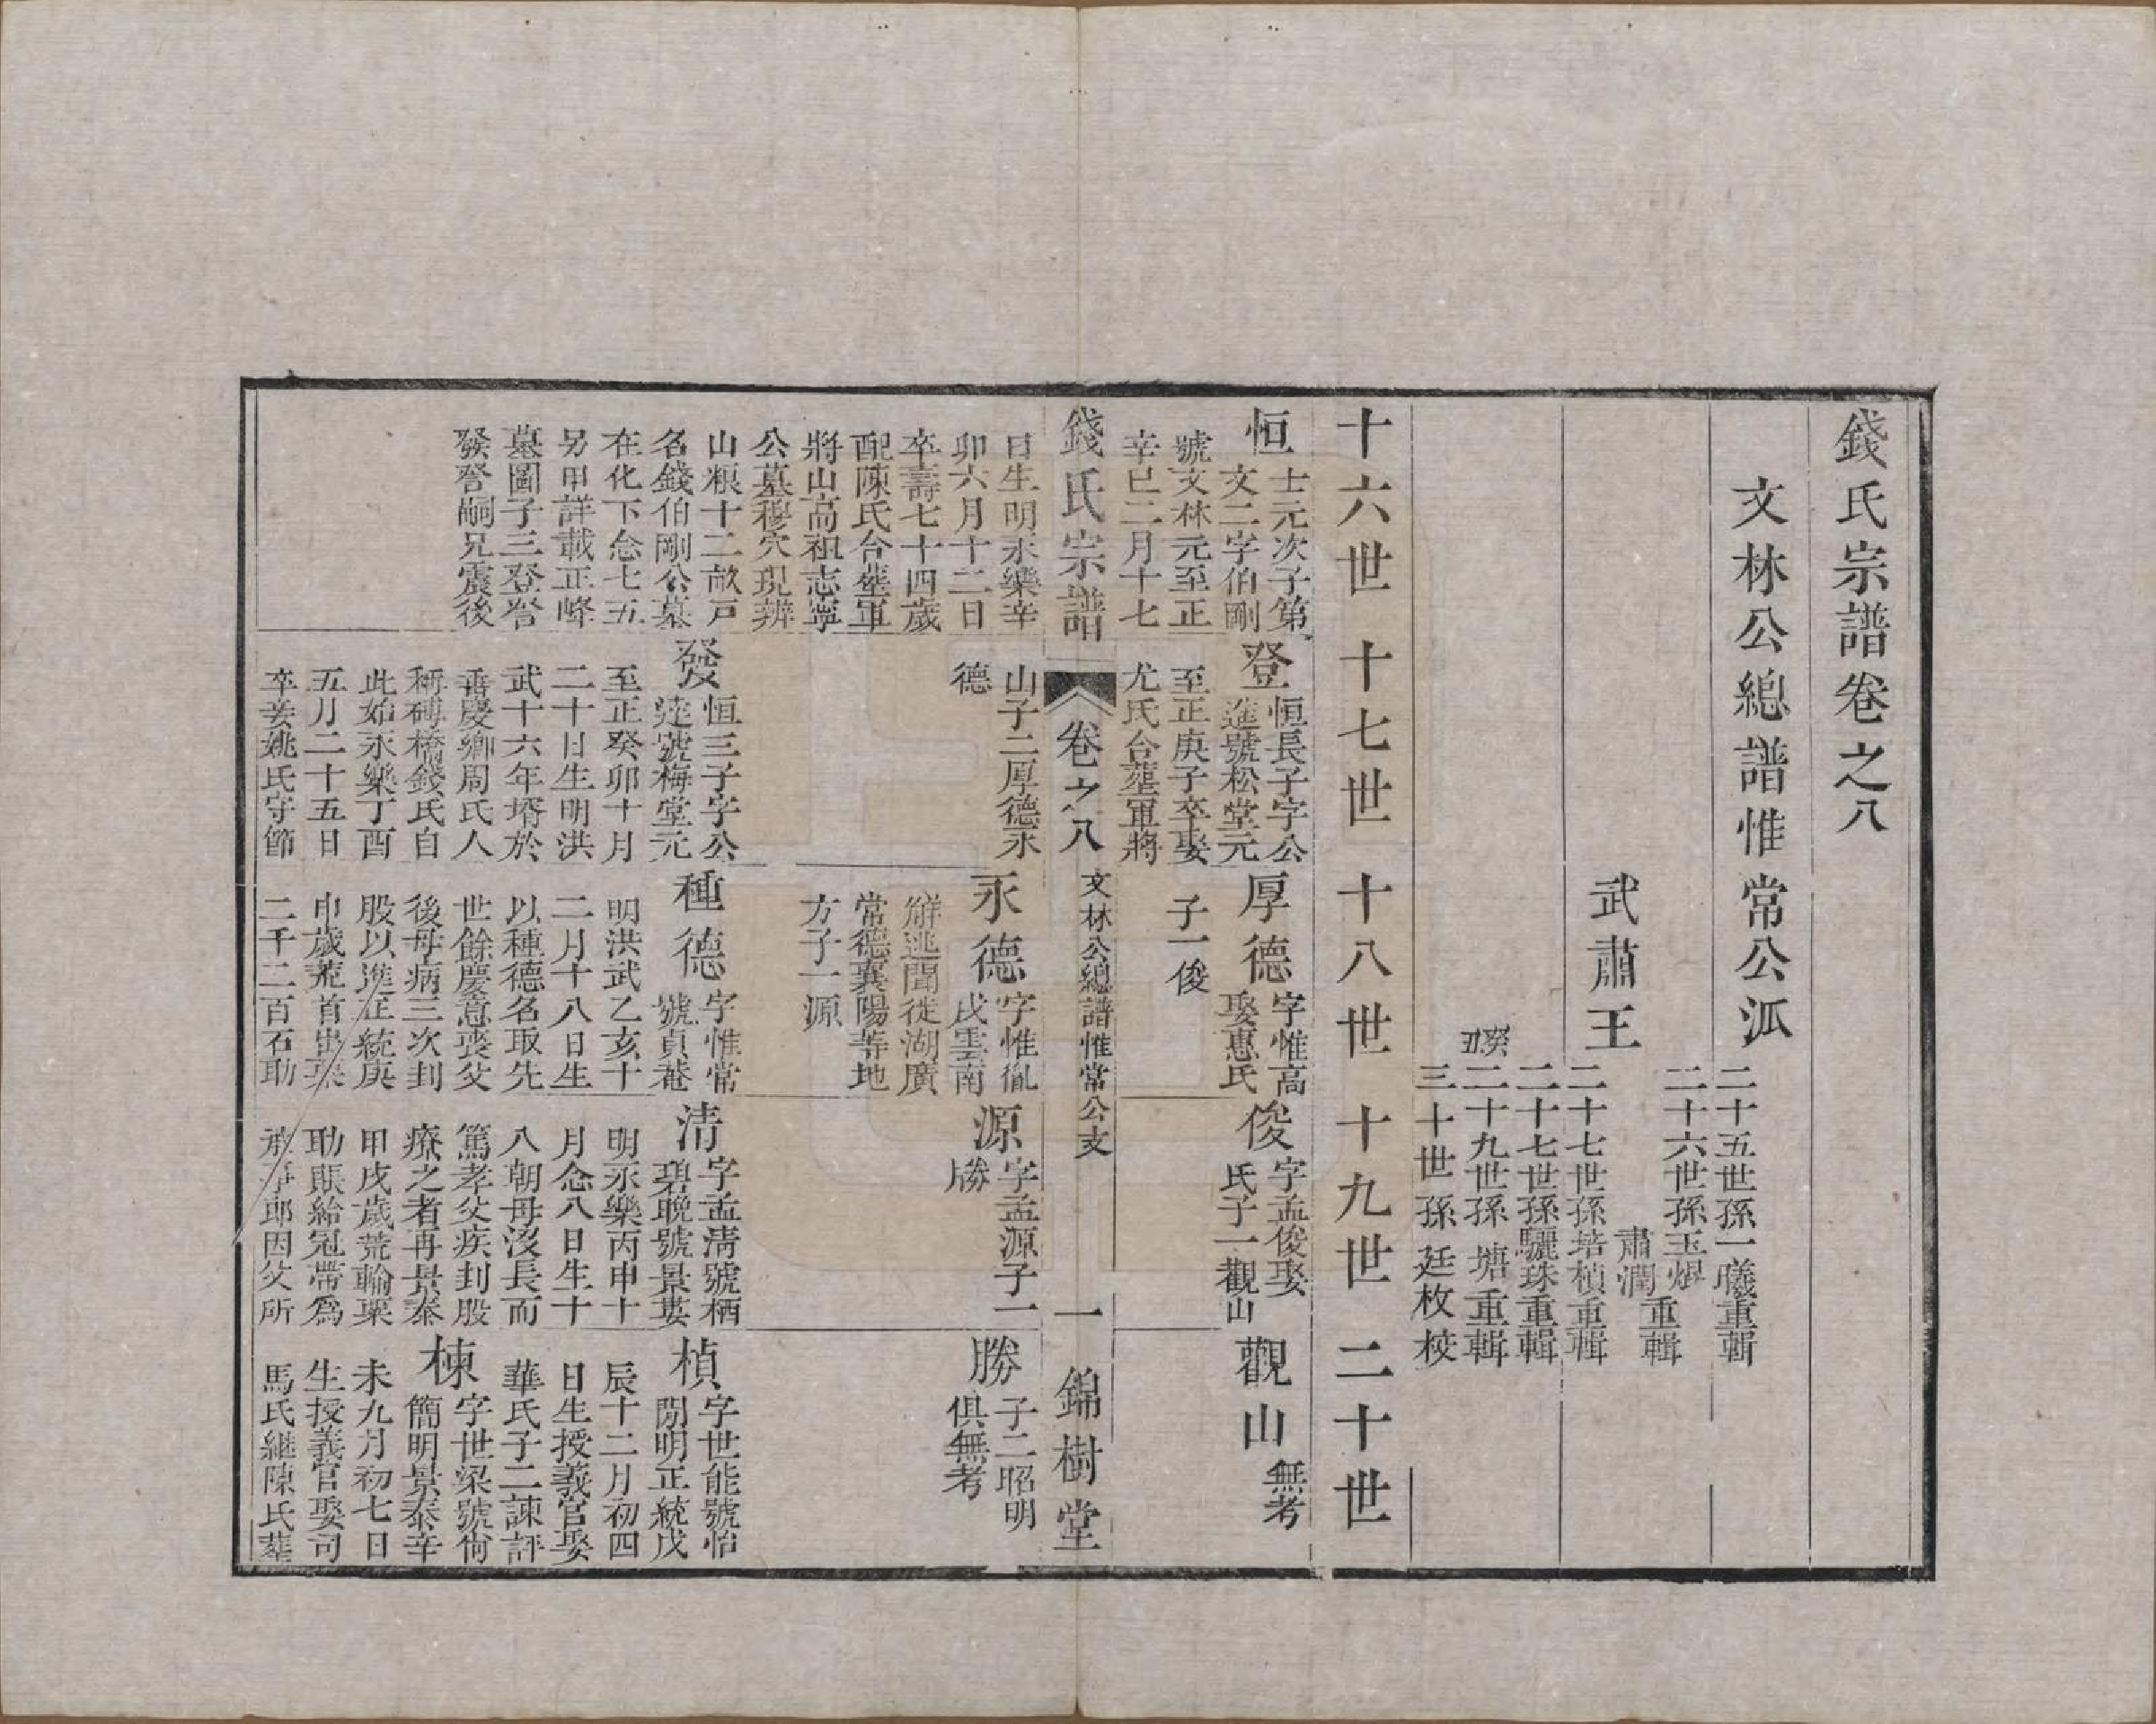 錢氏宗譜卷之八
文林公總譜惟常公派
二十五世孫一曦重輯
二十六世孫玉燿
肅潤
重輯
武肅王
二十七世孫培楨重輯
二十七世孫驪珠重輯
癸丑
二十九世孫塘重輯
三十世孫廷枚校
十六世
十七世
十八世
十九世
二十世
恒
士元次子第
文二字伯剛
號文林元至正
辛巳二月十七
登
恒長子字公
進號松堂元
至正庚子卒娶
尤氏合塟軍將
厚德
字惟高
娶惠氏
子一俊
俊
字孟俊娶
氏子一觀山
觀山
無考
錢氏宗譜
卷之八
文林公總譜惟常公支
一
錦樹堂
日生明永樂辛
卯六月十二日
卒壽七十四歲
配陳氏合塟軍
將山高祖志寧
公墓穆穴現辨
山粮十二畝戶
名錢伯剛公墓
在化下念七五
另甲詳載正峰
墓圖子三登詧
發詧嗣兄震後
山子二厚德永
德
永德
字惟胤
戍雲南
辭逃聞徙湖廣
常德襄陽等地
方子一源
源
字孟源子一
勝
勝
子二昭明
俱無考
發
恒三子字公
達號梅堂元
至正癸卯十月
二十日生明洪
武十六年壻於
垂慶鄉周氏人
稱磚橋錢氏自
此始永樂丁酉
五月二十五日
卒妾姚氏守節
種德
字惟常
號貞菴
明洪武乙亥十
二月十八日生
以種德名取先
世餘慶意喪父
後母病三次刲
股以進正統庚
申歲荒首出粟
二千二百石助
清
字孟清號栖
碧晚號景蔞
明永樂丙申十
月念八日生十
八朝母沒長而
篤孝父疾刲股
療之者再景泰
甲戌歲荒輸粟
助賑給冠帶為
承事郎因父所
楨
字世能號怡
閒明正統戊
辰十二月初四
日生授義官娶
華氏子二諫評
棟
字世梁號尙
簡明景泰辛
未九月初七日
生授義官娶司
馬氏繼陳氏塟